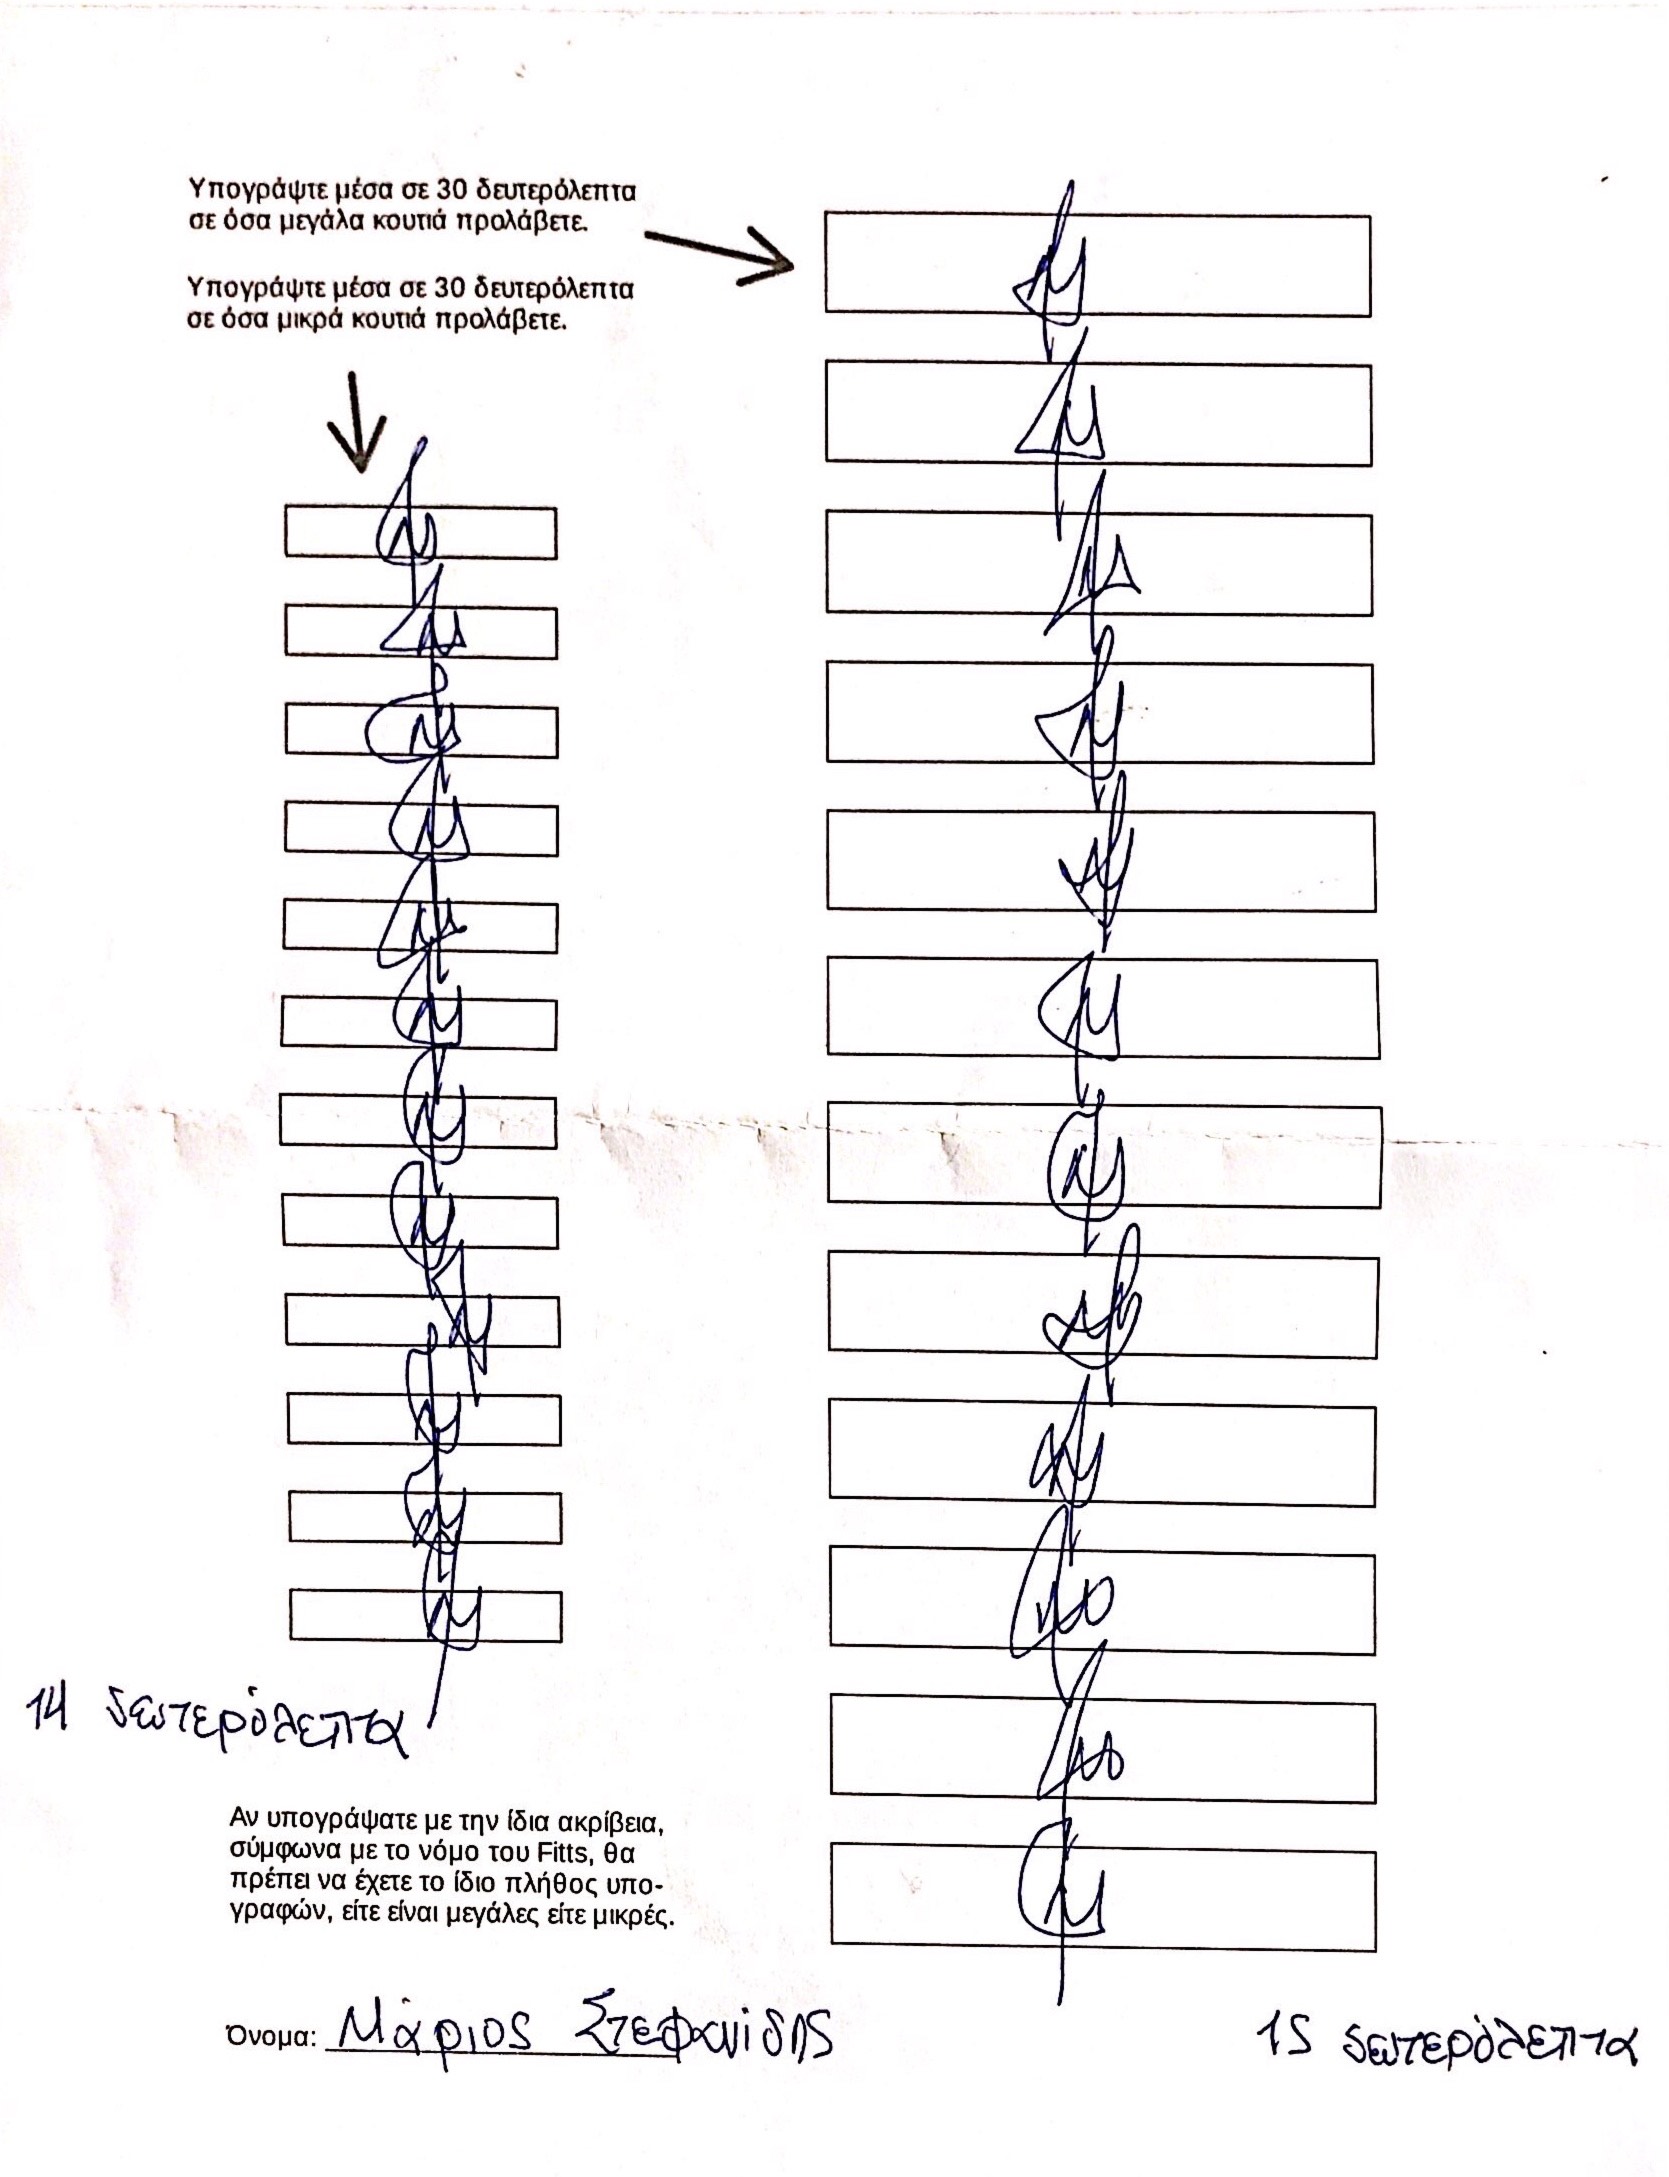 Υπογράψτε μέσα σε 30 δευτερόλεπτα
σε όσα μεγάλα κουτιά προλάβετε.
Υπογράψτε μέσα σε 30 δευτερόλεπτα
σε όσα μικρά κουτιά προλάβετε.
14 δευτερόλεπτα
Αν υπογράψατε με την ίδια ακρίβεια,
σύμφωνα με το νόμο του Fitts, θα
πρέπει να έχετε το ίδιο πλήθος υπο-
γραφών, είτε είναι μεγάλες είτε μικρές.
Όνομα: Μάριος Στεφανίδης
15 δευτερόλεπτα